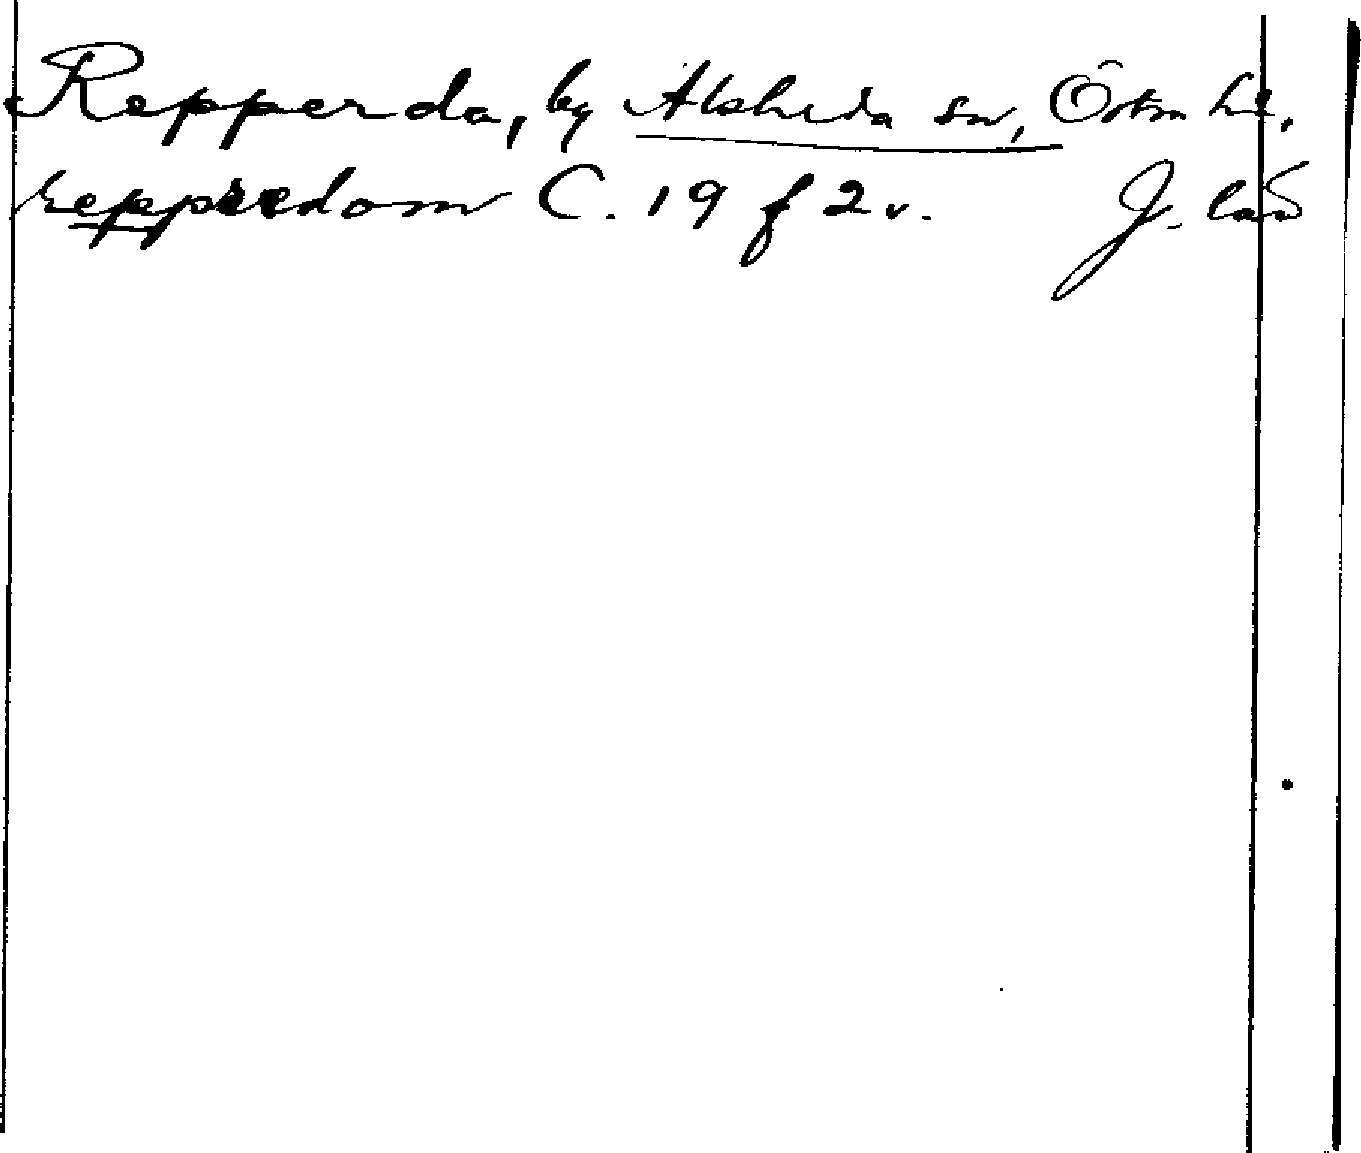 Repperda, by Alsheda sn, Östra hd.
repperdom C. 19 f 2 v. J. län